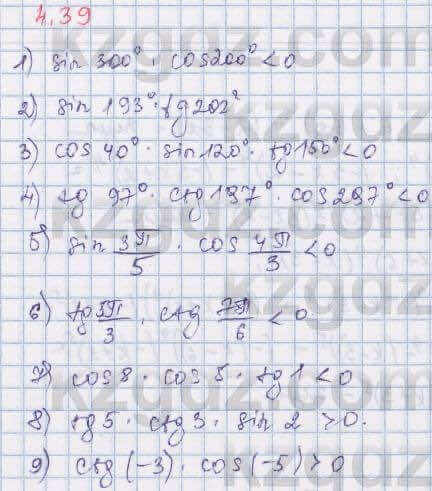 4.39
1) sin 300° · cos 200° < 0
2) sin 193° · tg 202°
3) cos 40° · sin 120° · tg 150° < 0
4) tg 97° · ctg 197° · cos 297° < 0
5) sin 3π/5 · cos 4π/3 < 0
6) tg 5π/3 · ctg 7π/6 < 0
7) cos 8 · cos 5 · tg 1 < 0
8) tg 5 · ctg 3 · sin 2 > 0.
9) ctg (-3) · cos (-5) > 0